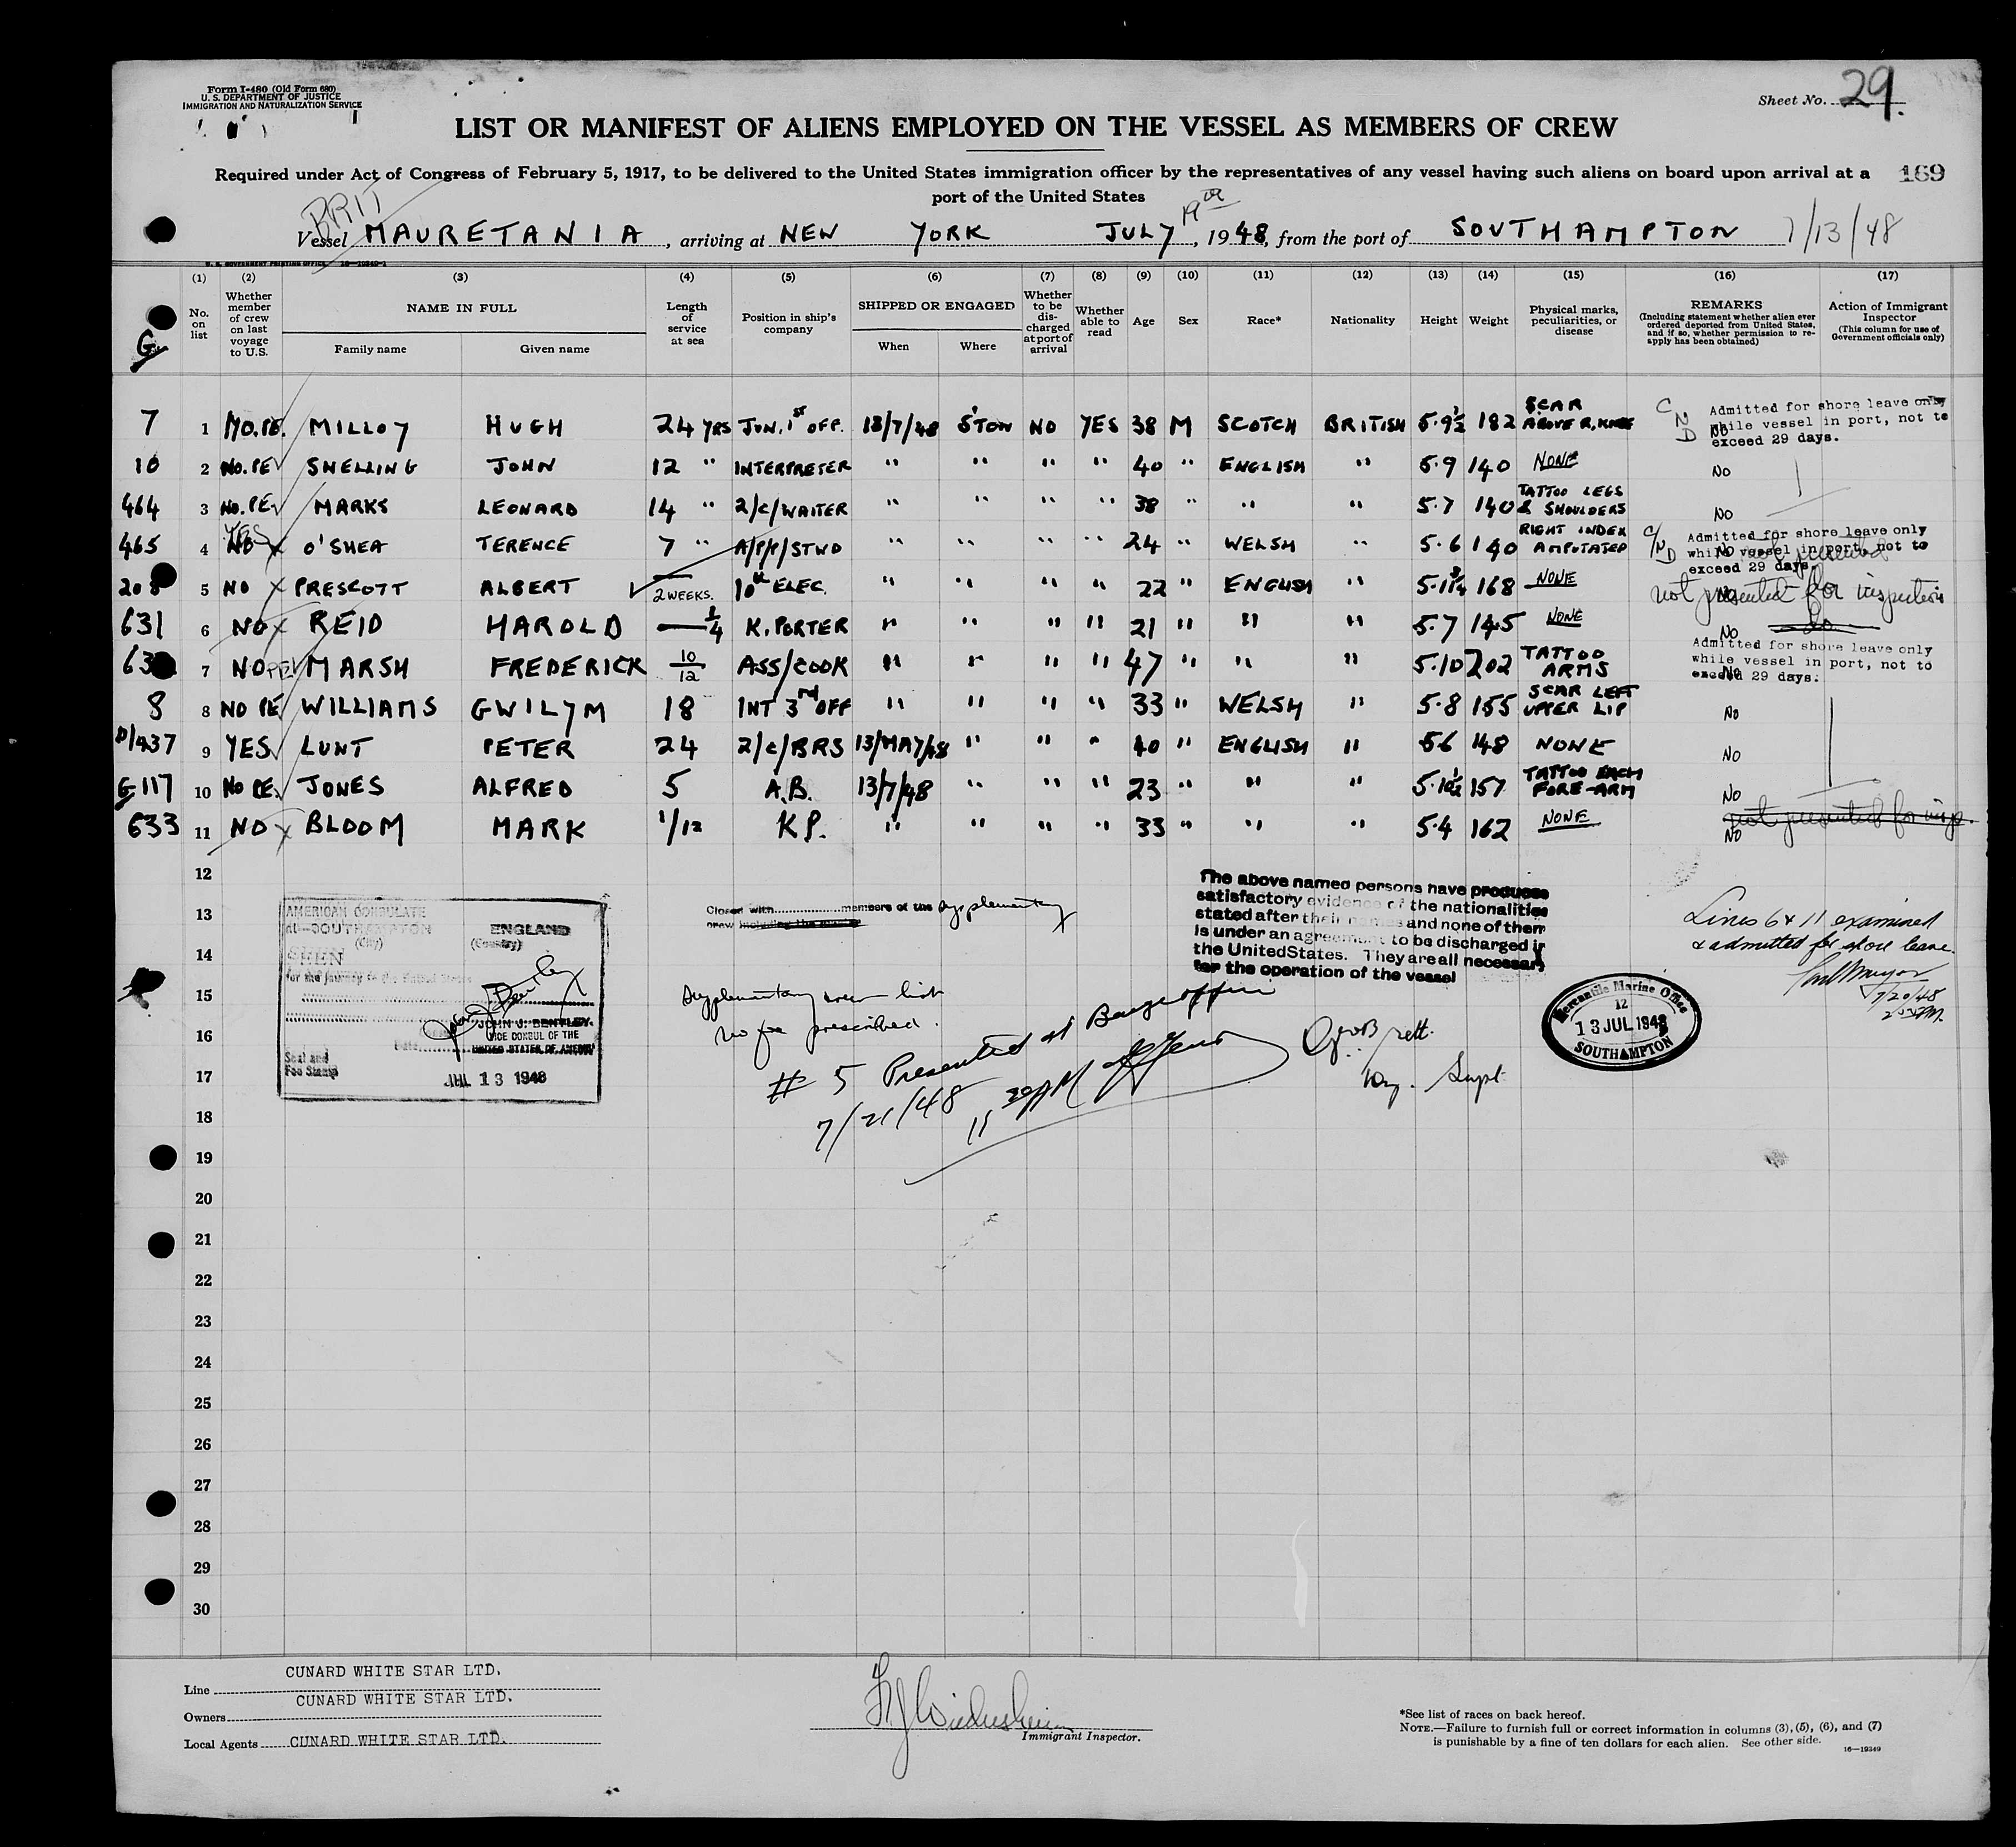 Form I-480 (Old Form 680)
U. S. DEPARTMENT OF JUSTICE
IMMIGRATION AND NATURALIZATION SERVICE
Sheet No. 29.
LIST OR MANIFEST OF ALIENS EMPLOYED ON THE VESSEL AS MEMBERS OF CREW
Required under Act of Congress of February 5, 1917, to be delivered to the United States immigration officer by the representatives of any vessel having such aliens on board upon arrival at a
port of the United States
169
BRIT
Vessel MAURETANIA, arriving at NEW YORK JULY 19th, 1948, from the port of SOUTHAMPTON 7/13/48
U. S. GOVERNMENT PRINTING OFFICE 16-19349-1
(1) (2) (3) (4) (5) (6) (7) (8) (9) (10) (11) (12) (13) (14) (15) (16) (17)
No. on list
Whether member of crew on last voyage to U.S.
NAME IN FULL
Family name Given name
Length of service at sea
Position in ship's company
SHIPPED OR ENGAGED
When Where
Whether to be discharged at port of arrival
Whether able to read
Age
Sex
Race*
Nationality
Height
Weight
Physical marks, peculiarities, or disease
REMARKS
(Including statement whether alien ever ordered deported from United States, and if so, whether permission to re-apply has been obtained)
Action of Immigrant Inspector
(This column for use of Government officials only)
G
7 1 NO.PE. MILLOY HUGH 24 YRS JUN. 1st OFF. 13/7/48 S'TON NO YES 38 M SCOTCH BRITISH 5.9½ 182 SCAR ABOVE R. KNEE NO
C/ND Admitted for shore leave only
while vessel in port, not to
exceed 29 days.
10 2 NO.PE SNELLING JOHN 12 " INTERPRETER " " " " 40 " ENGLISH " 5.9 140 NONE NO
464 3 NO.PE MARKS LEONARD 14 " 2/C/WAITER " " " " 38 " " " 5.7 140 TATTOO LEGS & SHOULDERS NO
465 4 NO YES O'SHEA TERENCE 7 " A/P/P/STWD " " " " 24 " WELSH " 5.6 140 RIGHT INDEX AMPUTATED NO
C/ND Admitted for shore leave only
while vessel in port, not to
exceed 29 days.
208 5 NO X PRESCOTT ALBERT 2 WEEKS. 10th ELEC. " " " " 22 " ENGLISH " 5.11¾ 168 NONE NO
not presented for inspection
631 6 NO X REID HAROLD ¼ K. PORTER " " " " 21 " " " 5.7 145 NONE NO
do
63 7 NO PE MARSH FREDERICK 10/12 ASS/COOK " " " " 47 " " " 5.10 202 TATTOO ARMS NO
Admitted for shore leave only
while vessel in port, not to
exceed 29 days.
8 8 NO PE WILLIAMS GWILYM 18 INT 3rd OFF " " " " 33 " WELSH " 5.8 155 SCAR LEFT UPPER LIP NO
D/437 9 YES LUNT PETER 24 2/C/BRS 13/MAY/48 " " " 40 " ENGLISH " 5.6 148 NONE NO
G 117 10 NO PE. JONES ALFRED 5 A.B. 13/7/48 " " " 23 " " " 5.10½ 157 TATTOO EACH FORE-ARM NO
633 11 NO X BLOOM MARK 1/12 K.P. " " " " 33 " " " 5.4 162 NONE NO
not presented for insp.
12
13
14
15
16
17
18
19
20
21
22
23
24
25
26
27
28
29
30
AMERICAN CONSULATE
at SOUTHAMPTON ENGLAND
(City) (Country)
SEEN
for the journey to the United States
JOHN J. BENTLEY.
VICE CONSUL OF THE
UNITED STATES OF AMERICA
Date
Seal and
Fee Stamp
JUL 13 1948
Closed with members of the supplementary
crew including the master
Supplementary crew list
No fee prescribed.
# 5 Presented at Barge office
7/21/48 11 30 AM
The above named persons have produced
satisfactory evidence of the nationalities
stated after their names and none of them
is under an agreement to be discharged in
the United States. They are all necessary
for the operation of the vessel
Supt
Mercantile Marine Office
12
13 JUL 1948
SOUTHAMPTON
Lines 6 & 11 examined
& admitted for shore leave.
7/20/48
Line CUNARD WHITE STAR LTD.
Owners CUNARD WHITE STAR LTD.
Local Agents CUNARD WHITE STAR LTD.
Immigrant Inspector.
*See list of races on back hereof.
NOTE.—Failure to furnish full or correct information in columns (3), (5), (6), and (7)
is punishable by a fine of ten dollars for each alien. See other side.
16—19349